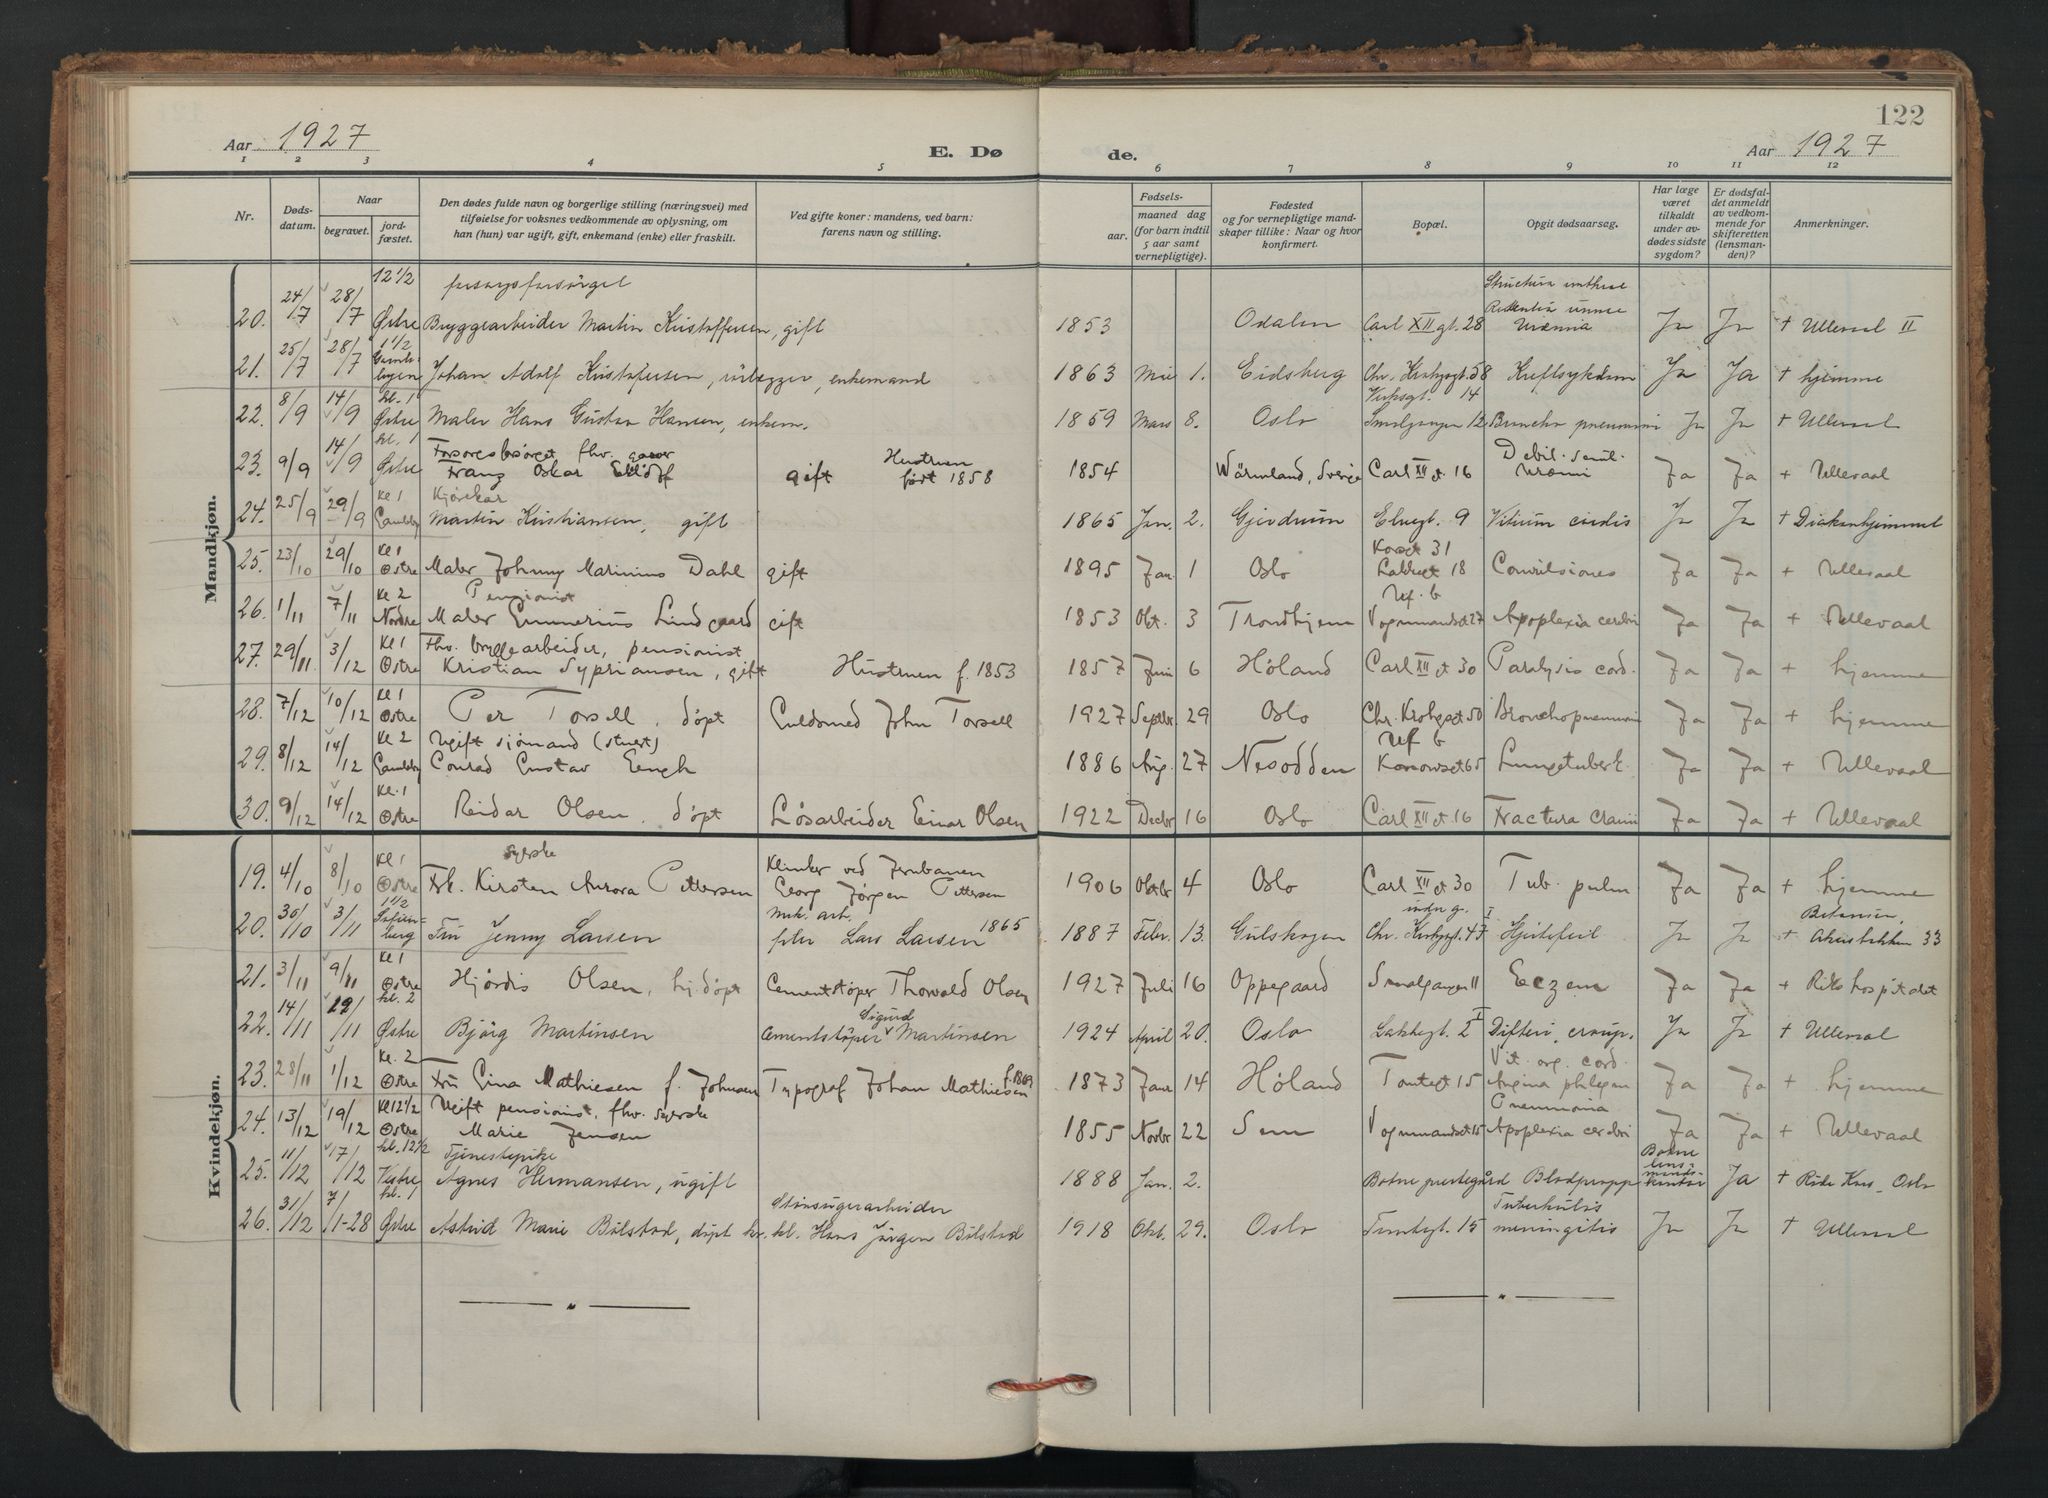 122
Aar 1927
E. Dø
de.
Aar 1927
1 2 3 4 5 6 7 8 9 10 11 12
Nr.
Døds-
datum.
Naar
begravet.
jord-
fæstet.
Den dødes fulde navn og borgerlige stilling (næringsvei) med
tilføielse for voksnes vedkommende av oplysning, om
han (hun) var ugift, gift, enkemand (enke) eller fraskilt.
Ved gifte koner: mandens, ved barn:
farens navn og stilling.
Fødsels-
aar.
maaned dag
(for barn indtil
5 aar samt
vernepligtige).
Fødested
og for vernepligtige mand-
skaper tillike: Naar og hvor
konfirmert.
Bopæl.
Opgit dødsaarsag.
Har læge
været
tilkaldt
under av-
dødes sidste
sygdom?
Er dødsfal-
det anmeldt
av vedkom-
mende for
skifteretten
(lensman-
den)?
Anmerkninger.
Mandkjøn.
12 1/2 forsorgsforsørget
20. 24/7 28/7 Østre Bryggearbeider Martin Kristoffersen, gift 1853 Odalen Carl XII gt. 28 Uræmia Ja Ja + Ulleval II
1 1/2
21. 25/7 28/7 Gamlebyen Johan Adolf Kristofersen, enkemand 1863 Mai 1. Eidsberg Chr. Krohgsgt. 58 Kreftsykdom Ja Ja + hjemme
kl. 1 14
22. 8/9 14/9 Østre Maler Hans Gustav Hansen, enkem. 1859 Mars 8. Oslo Smalgangen 12 Broncho pneumoni Ja Ja + Ulleval
kl. 1 Forsorgsforsørget fhv. Hustruen Debil. senil.
23. 9/9 14/9 Østre Franz Oskar gift født 1858 1854 Wärmland, Sverige Carl XII gt 16 Uræmi Ja Ja + Ullevaal
Kl 1 Kjørekar
24. 25/9 29/9 Gamleby Martin Kristiansen, gift 1865 Jan. 2. Gjerdrum Elvegt. 9 Vitium cordis Ja Ja + Diakonhjemmet
Kl 1 31
25. 23/10 29/10 Østre Maler Johnny Marinius Dahl gift 1895 Jan 1 Oslo Lakkegt 18 Convulsiones Ja Ja + Ullevaal
Kl 2 Pensionist
26. 1/11 7/11 Nordre Maler Emmerius Lindgaard gift 1853 Okt. 3 Trondhjem Vognmandsgt 27 Apoplexia cerebri Ja Ja + Ullevaal
Kl 1 Fhv. byggearbeider, pensionist
27. 29/11 3/12 Østre Kristian Sypriansen, gift Hustruen f. 1853 1857 Juni 6 Høland Carl XII gt 30 Paralysis cord. Ja Ja + hjemme
Kl 1
28. 7/12 10/12 Østre Per Torsell, døpt Guldsmed John Torsell 1927 Septbr 29 Oslo Chr. Krohgsgt 50 Bronchopneumoni Ja Ja + hjemme
Kl 2 Ugift sjømand (stuert)
29. 8/12 14/12 Gamleby Conrad Gustav Eengh 1886 Aug. 27 Nesodden 65 Lungetuberk. Ja Ja + Ullevaal
Kl. 1
30. 9/12 14/12 Østre Reidar Olsen, døpt Løsarbeider Einar Olsen 1922 Decbr 16 Oslo Carl XII gt. 16 Fractura cranii Ja Ja + Ullevaal
Kvindekjøn.
Kl 1 syerske Klinker ved Jernbanen
19. 4/10 8/10 Østre Frk. Kirsten Aurora Pettersen Georg Jørgen Pettersen 1906 Oktbr 4 Oslo Carl XII gt 30 Tub. pulm Ja Ja + hjemme
1 1/2 mek. arb. Betanien,
20. 30/10 3/11 Sofienberg Fru Jenny Larsen Lars Larsen 1865 1887 Febr. 13. Gulskogen Chr. Krohgsgt. 47 I Hjertefeil Ja Ja + Akersbakken 33
Kl 1
21. 3/11 9/11 Østre Hjørdis Olsen, hj.døpt Cementstøper Thorvald Olsen 1927 Juli 16 Oppegaard Smalgangen 11 Eczem Ja Ja + Rikshospitalet
kl. 2 Sigurd
22. 14/11 19/11 Østre Bjørg Martinsen Cementstøper Martinsen 1924 April 20. Oslo Lakkegt. 2 I Difteri, croup. Ja Ja + Ulleval
Kl. 2 f. 1869 Vit. org. cord.
23. 28/11 1/12 Østre Fru Gina Mathiesen f. Johnsen Typograf Johan Mathiesen 1873 Janr 14 Høland Tomtegt 15 Angina Ja Ja + hjemme
Kl 12 1/2 Ugift pensionist, fhv. syerske Pneumonia
24. 13/12 19/12 Østre Marie Jensen 1855 Novbr 22 Sem Vognmandsgt 15 Apoplexia cerebri Ja Ja + Ullevaal
kl. 12 1/2 Tjenestepike Botne lens-
25. 11/12 17/12 Vestre Agnes Hermansen, ugift 1888 Jan. 2. Botne prestegård Blodpropp Ja + Røde Kors Oslo
kl. 1 Tuberkuløs
26. 31/12 7/1-28 Østre Astrid Marie Bilstad, døpt Hans Jørgen Bilstad 1918 Okt. 29. Oslo Tomtegt. 15 meningitis Ja Ja + Ulleval